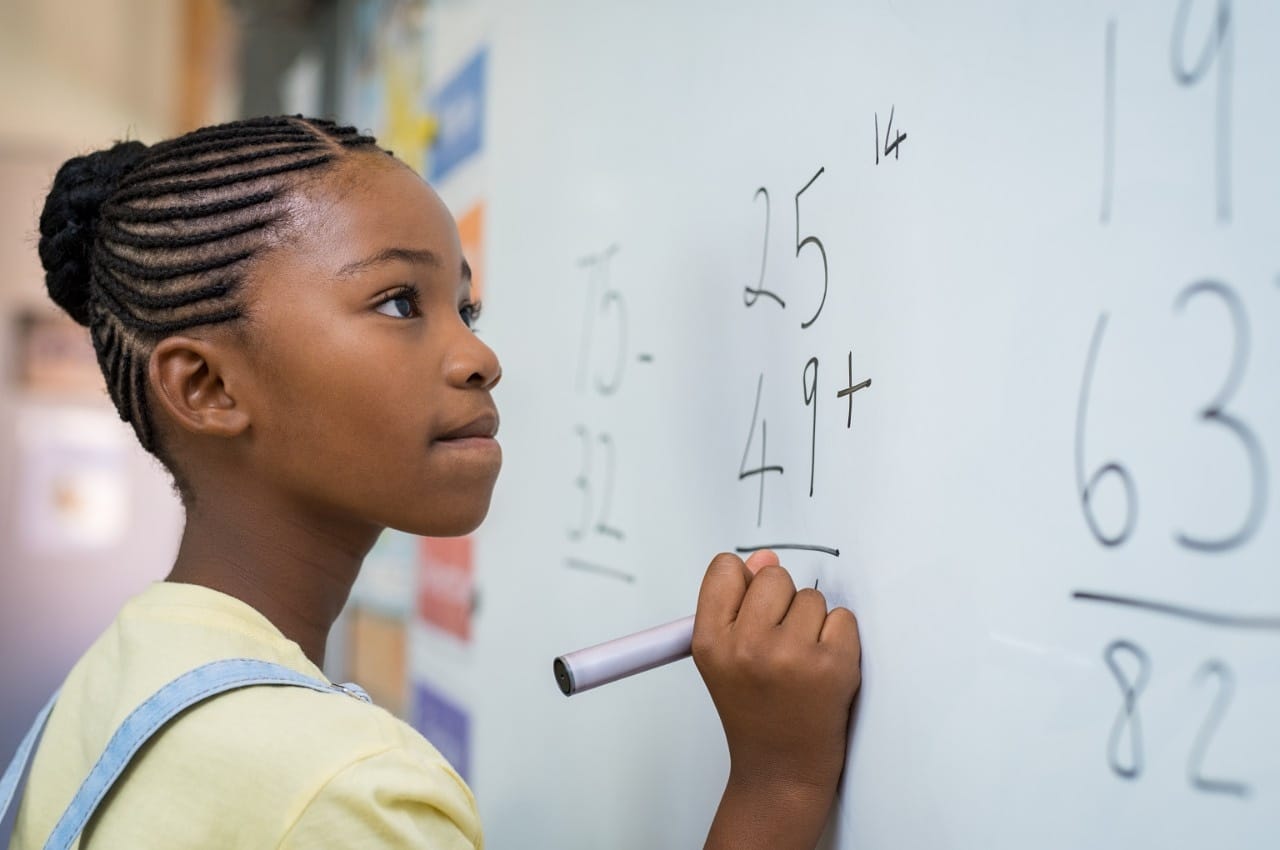 75 -
32
14
25
49 +
19
63
82